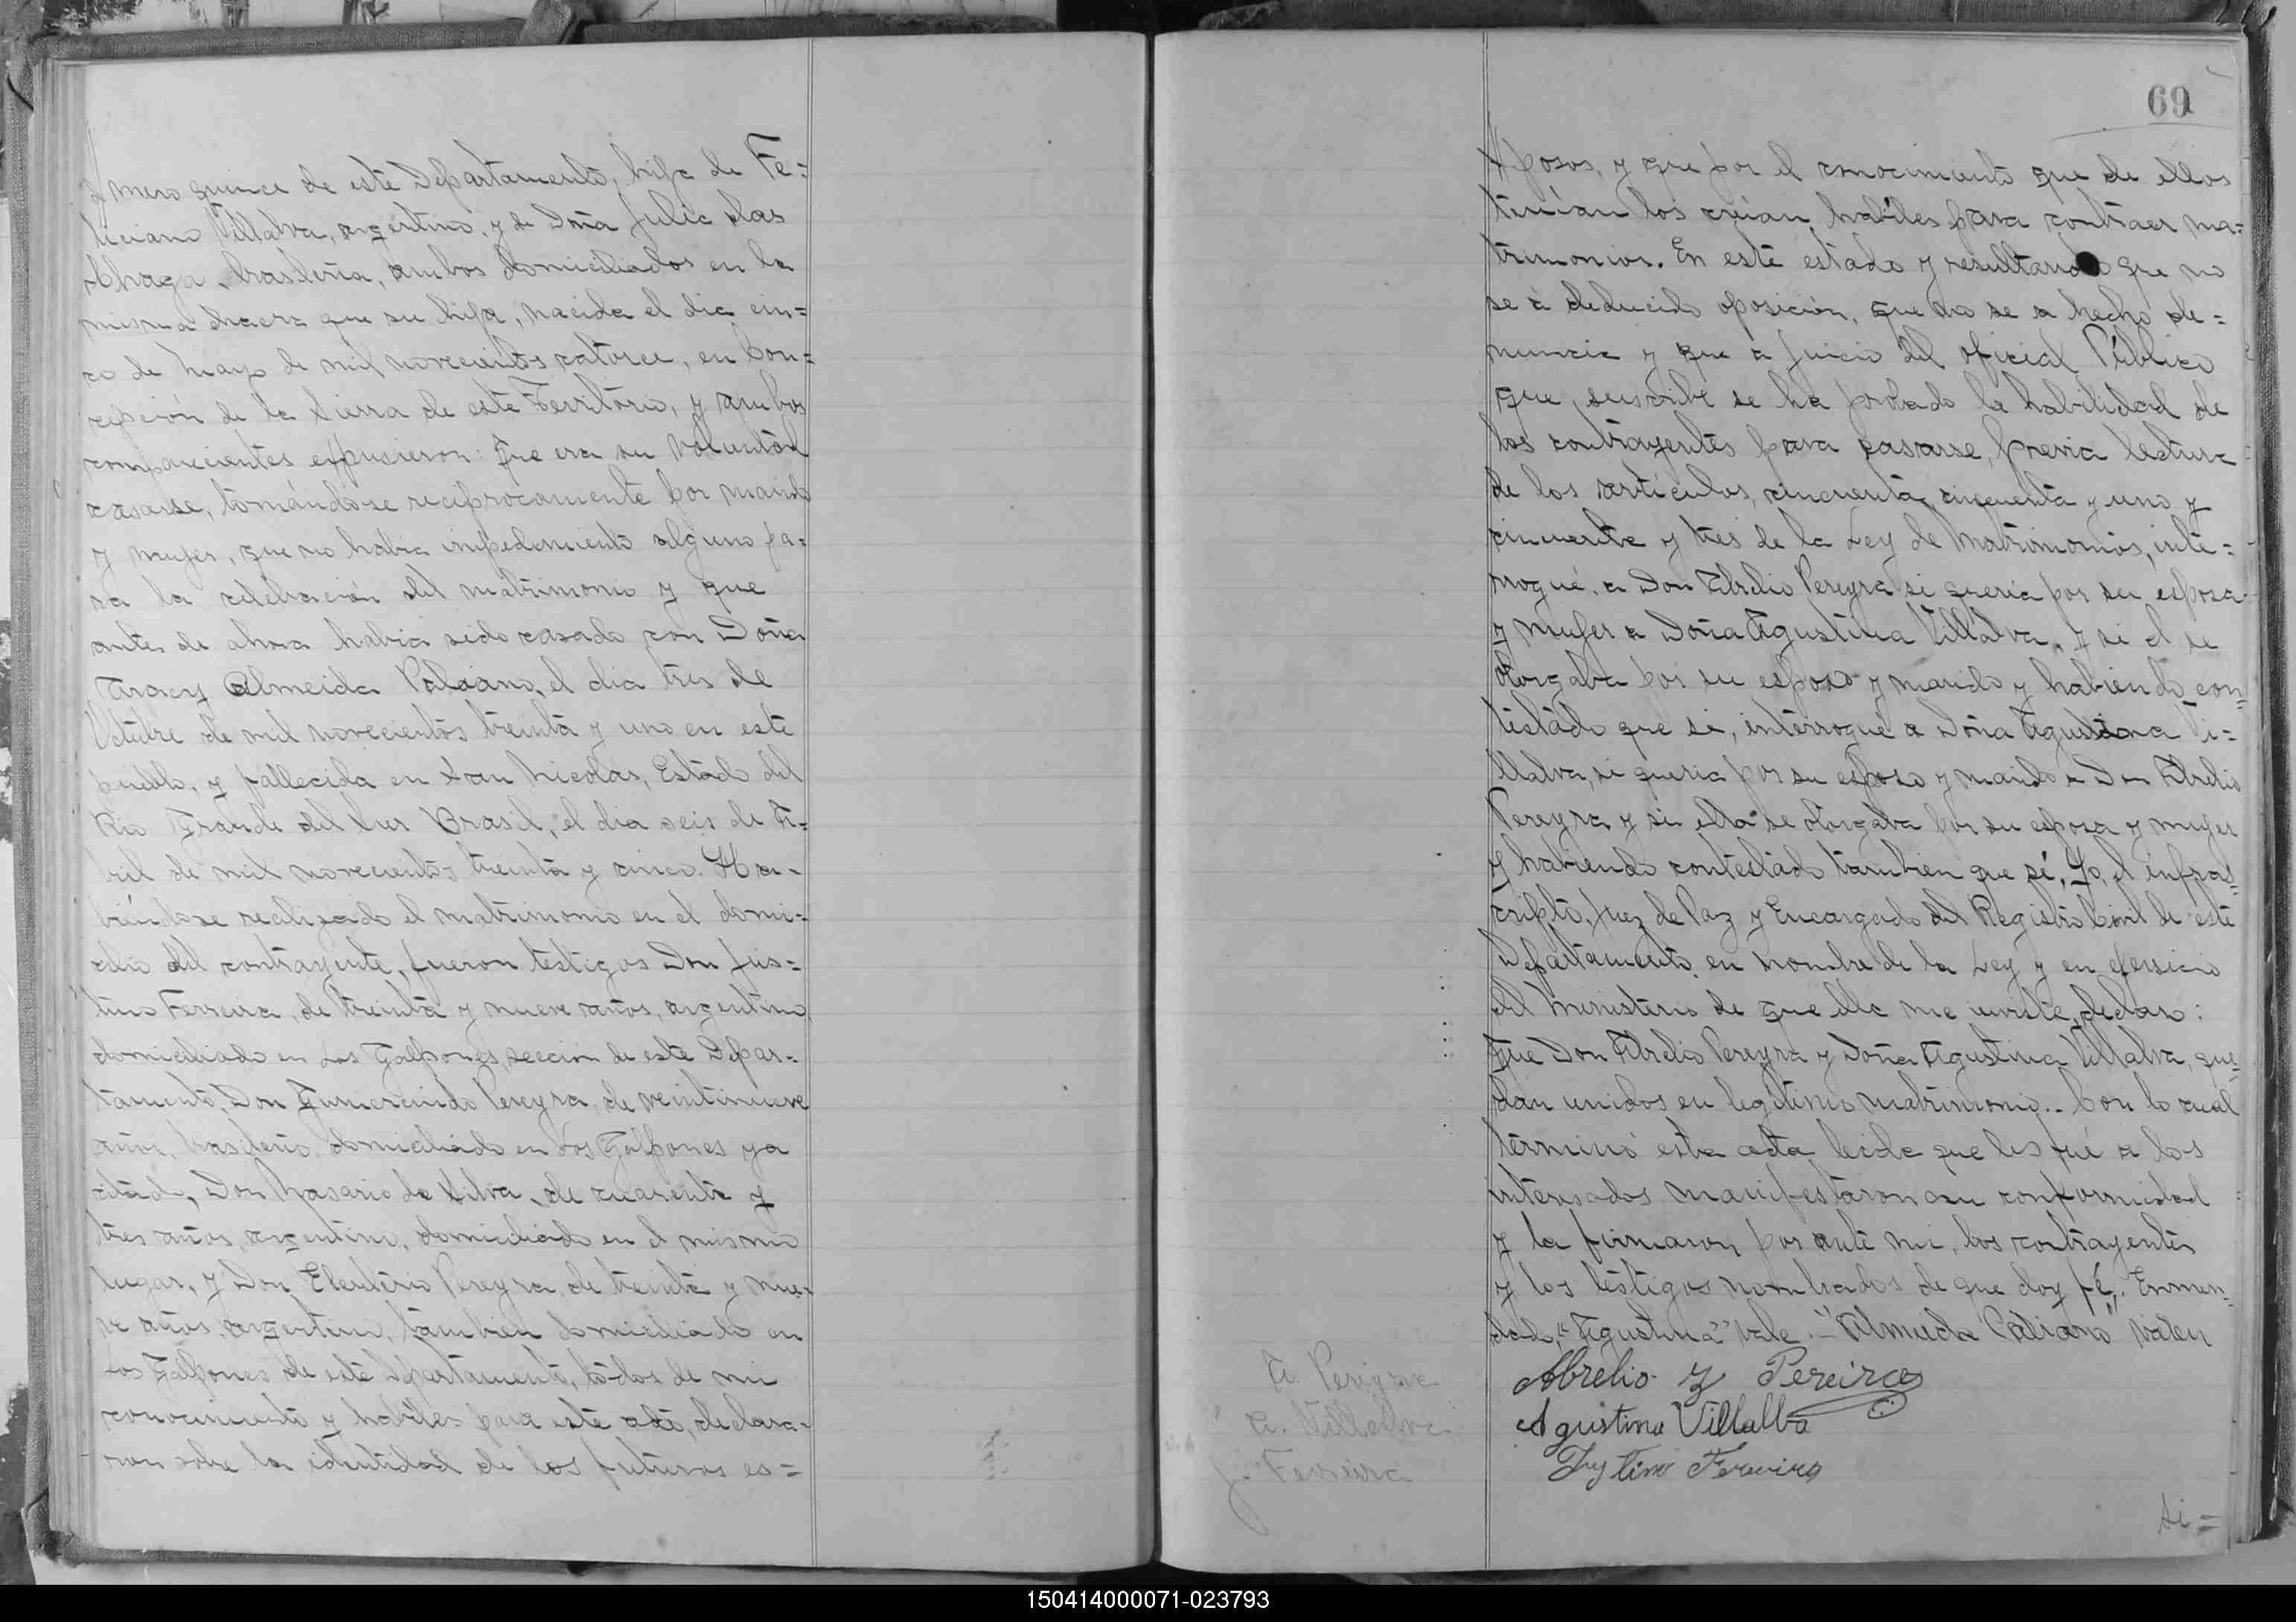 mero quince de este Departamento, hija de Fe=
liciano Villalva, argentino, y de Doña Julia das
Chaga, brasileña, ambos domiciliados en la
misma chacra que su hija, nacida el dia cin=
co de Mayo de mil novecientos catorce, en Con=
cepción de la Sierra de este Territorio, y ambos
comparecientes expusieron: Que era su voluntad
casarse, tomándose reciprocamente por marido
y mujer, que no habia impedimiento alguno pa=
ra la celebración del matrimonio y que
antes de ahora habia sido casado con Doña
Aracy Almeida Palvano, el dia tres de
Octubre de mil novecientos treinta y uno en este
pueblo, y fallecida en San Nicolas, Estado del
Rio Grande del Sur Brasil, el dia seis de A=
bril de mil novecientos treinta y cinco. Ha=
biéndose realizado el matrimonio en el domi=
cilio del contrayente, fueron testigos Don Jus=
tino Ferreira, de treinta y nueve años, argentino
domiciliado en Los Galpones, sección de este Depar=
tamento, Don Gumercindo Pereyra, de veintinueve
años, brasileño, domiciliado en Los Galpones ya
citado, Don Rosario da Silva, de cuarenta y
tres años, argentino, domiciliado en el mismo
lugar, y Don Eleuterio Pereyra, de treinta y nue=
ve años, argentino, tambien domiciliado en
Los Galpones de este Departamento, todos de mi
conocimiento y habiles para este acto, declara=
ron sobre la identidad de los futuros es=
69
posos, y que por el conocimiento que de ellos
tenían los creían habiles para contraer ma=
trimonios. En este estado y resultando que no
se à deducido oposición, que no se a hecho de=
nuncia y que a juicio del oficial Público
que suscribe se ha probado la habilidad de
los contrayentes para casarse, previa lectura
de los artículos, cincuenta, cincuenta y uno y
cincuenta y tres de la Ley de Matrimonios, inte=
rrogué, a Don Abrelio Pereyra si queria por su esposa
y mujer a Doña Agustina Villalva, y si el se
otorgaba por su esposo y marido y habiendo con=
testado que si, interrogué a Doña Agustina Vi=
llalva, si queria por su esposo y marido a Don Abrelio
Pereyra y si ella se otorgaba por su esposa y mujer
y habiendo contestado tambien que sí, Yo, el infras=
cripto, Juez de Paz y Encargado del Registro Civil de este
Departamento, en nombre de la Ley y en ejersicio
del Ministerio de que ella me inviste, declaro:
Que Don Abrelio Pereyra y Doña Agustina Villalva, que=
dan unidos en legítimo matrimonio.. Con lo cual
terminó esta acta leida que les fué a los
interesados manifestaron su conformidad
y la firmaron por ante mi, los contrayentes
y los testigos nombrados de que doy fé,. Enmen=
dado, "Agustina" Vale. - "Almeida Palvano" Valen
A. Pereyra
Abrelio Pereira
A. Villalva
Agustina Villalba
J. Ferreira
Justino Ferreira
Si=
150414000071-023793